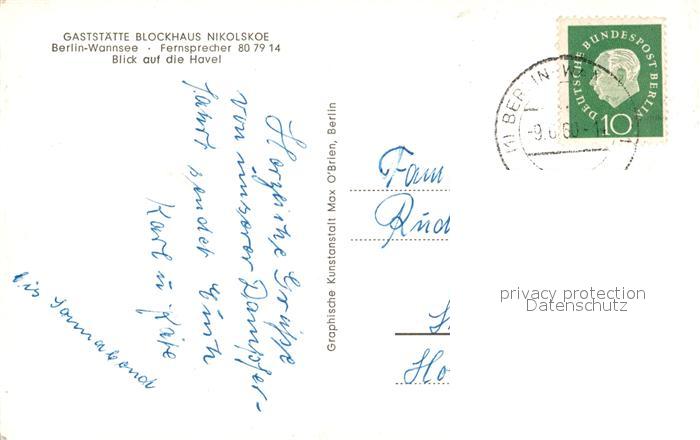 GASTSTÄTTE BLOCKHAUS NIKOLSKOE
Berlin-Wannsee · Fernsprecher 80 79 14
Blick auf die Havel
Herzliche Grüße
von unserer Dampfer-
fahrt sendet Euch
Karl u. Käte
bis Sonnabend
Graphische Kunstanstalt Max O'Brien, Berlin
DEUTSCHE BUNDESPOST BERLIN
10
(1) BERLIN-W
-9.6.60-1
Fam
Rud
Ho
privacy protection
Datenschutz